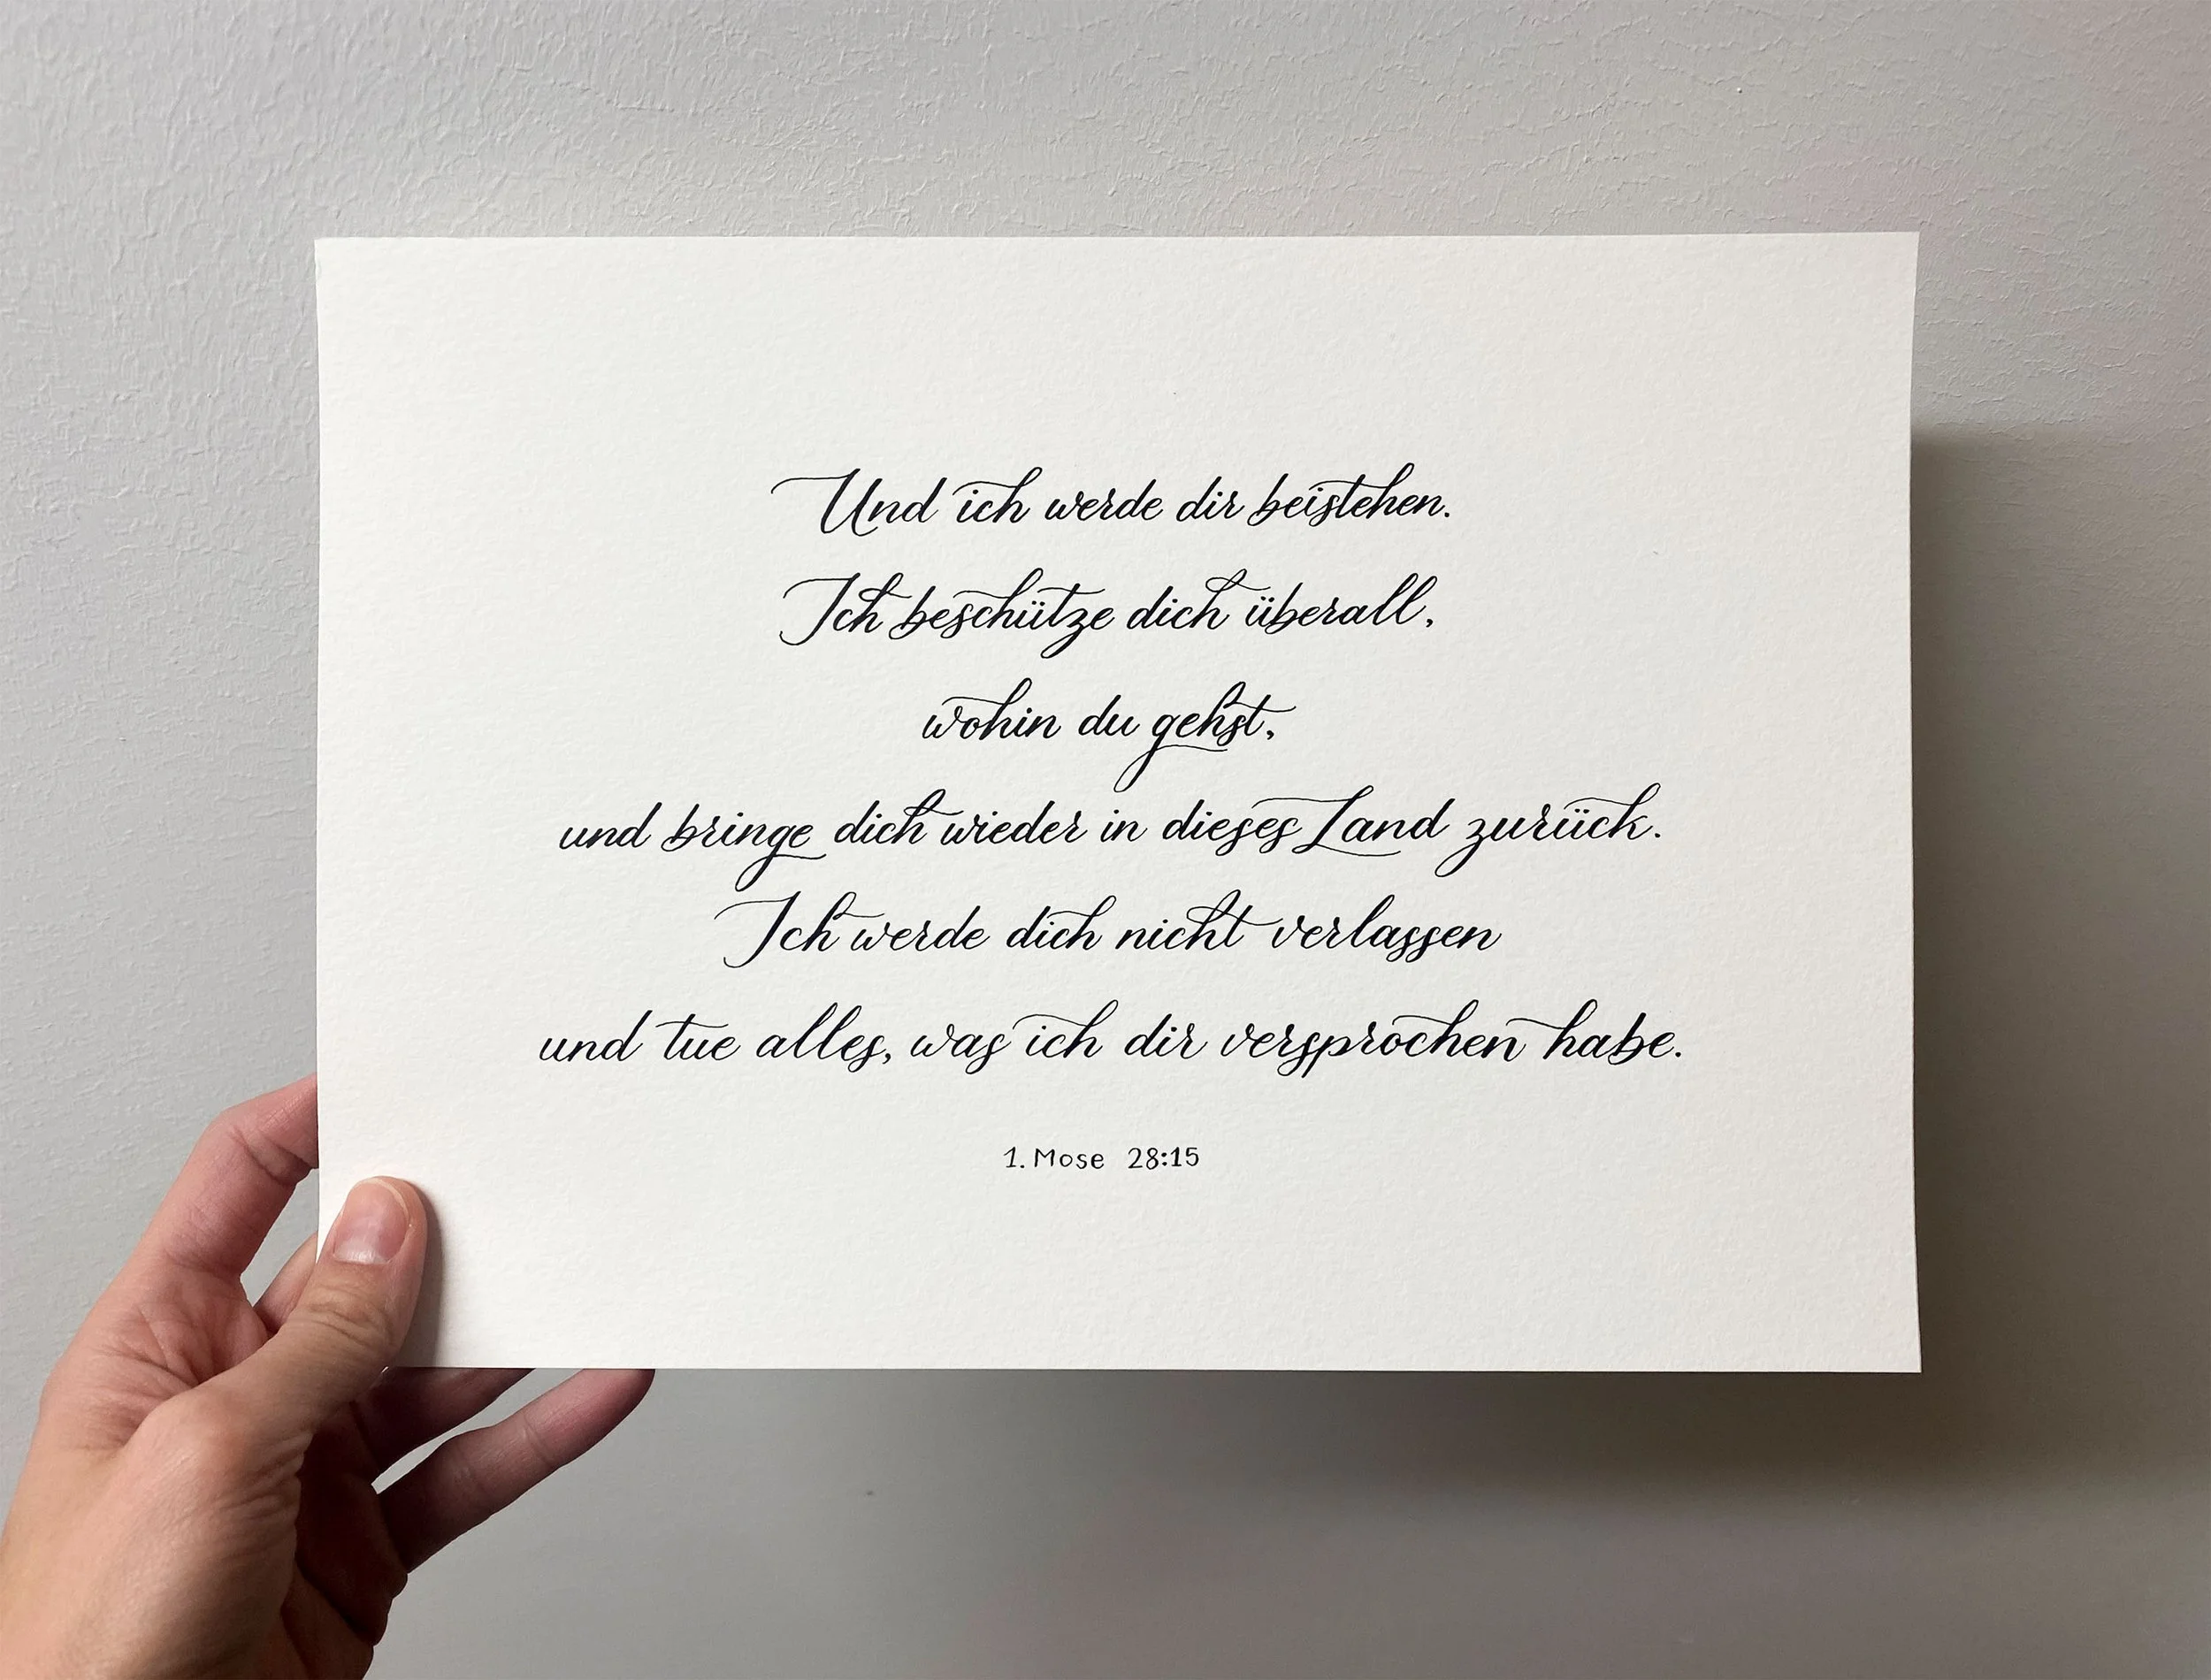 Und ich werde dir beistehen.
Ich beschütze dich überall,
wohin du gehst,
und bringe dich wieder in dieses Land zurück.
Ich werde dich nicht verlassen
und tue alles, was ich dir versprochen habe.
1. Mose 28:15